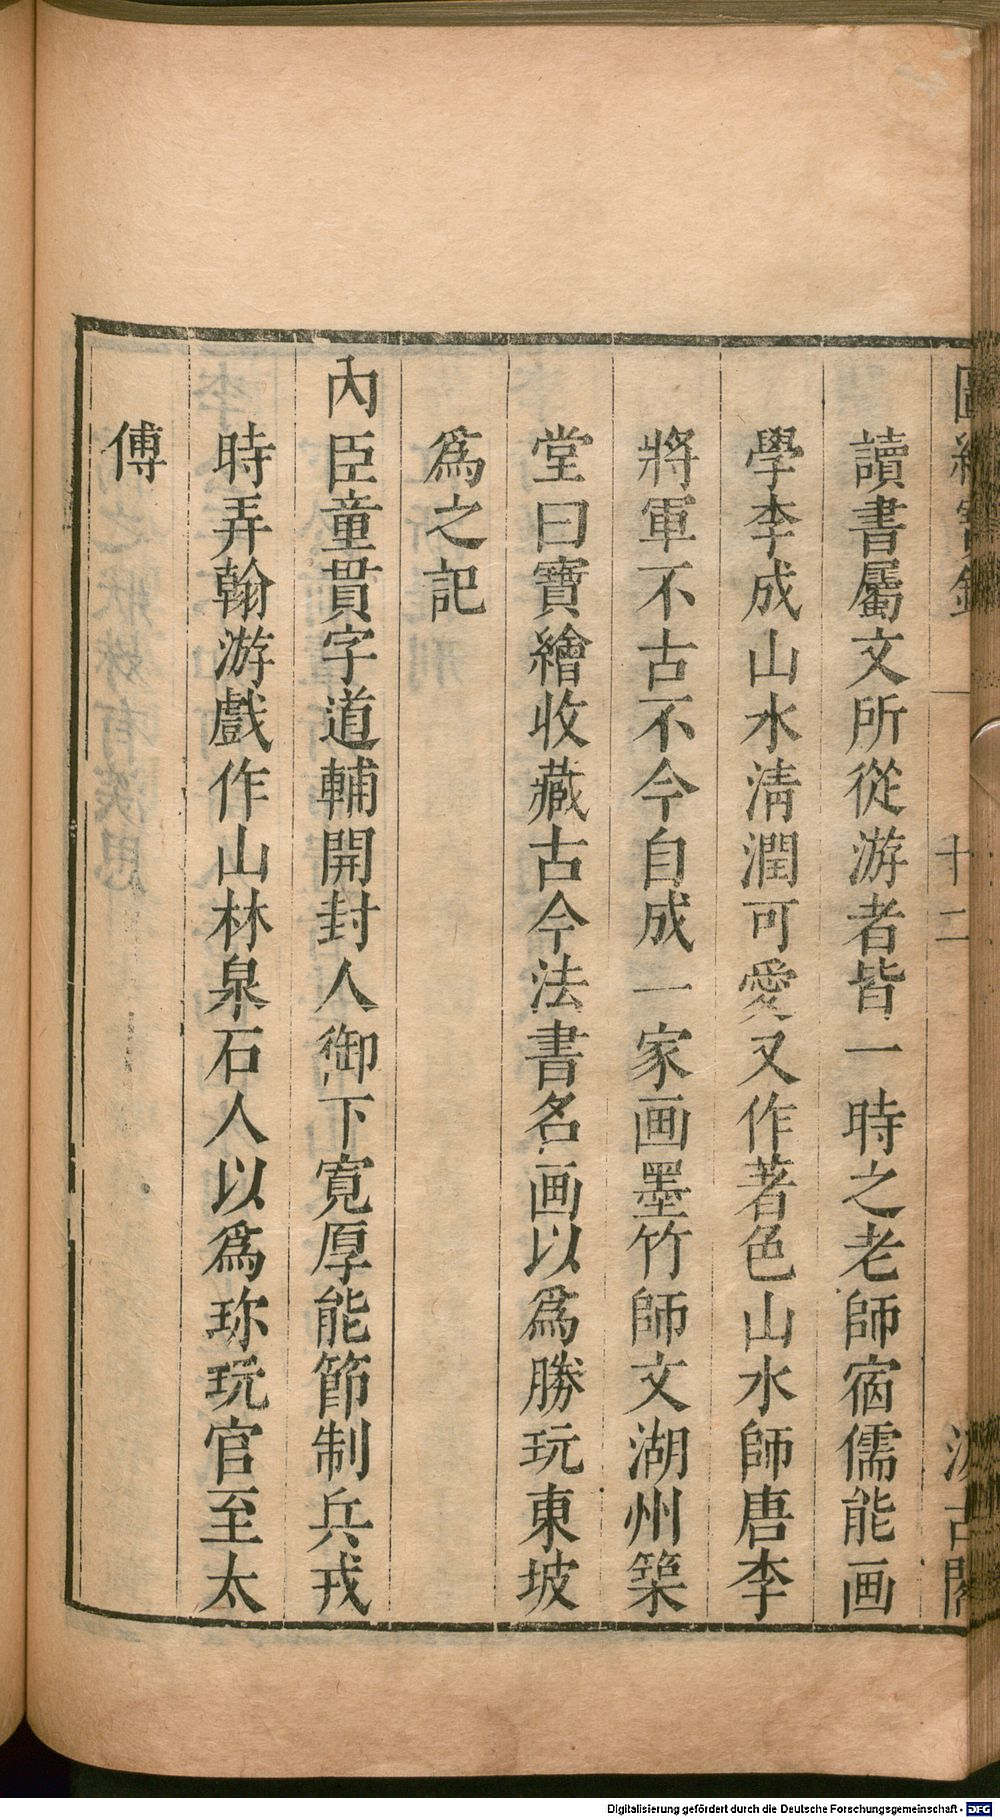 圖繪寶鑑 十二 汲古閣
讀書屬文所從游者皆一時之老師宿儒能画
學李成山水清潤可愛又作著色山水師唐李
將軍不古不今自成一家画墨竹師文湖州築
堂曰寶繪收藏古今法書名画以爲勝玩東坡
爲之記
內臣童貫字道輔開封人御下寬厚能節制兵戎
時弄翰游戲作山林泉石人以爲珎玩官至太
傅
Digitalisierung gefördert durch die Deutsche Forschungsgemeinschaft - DFG